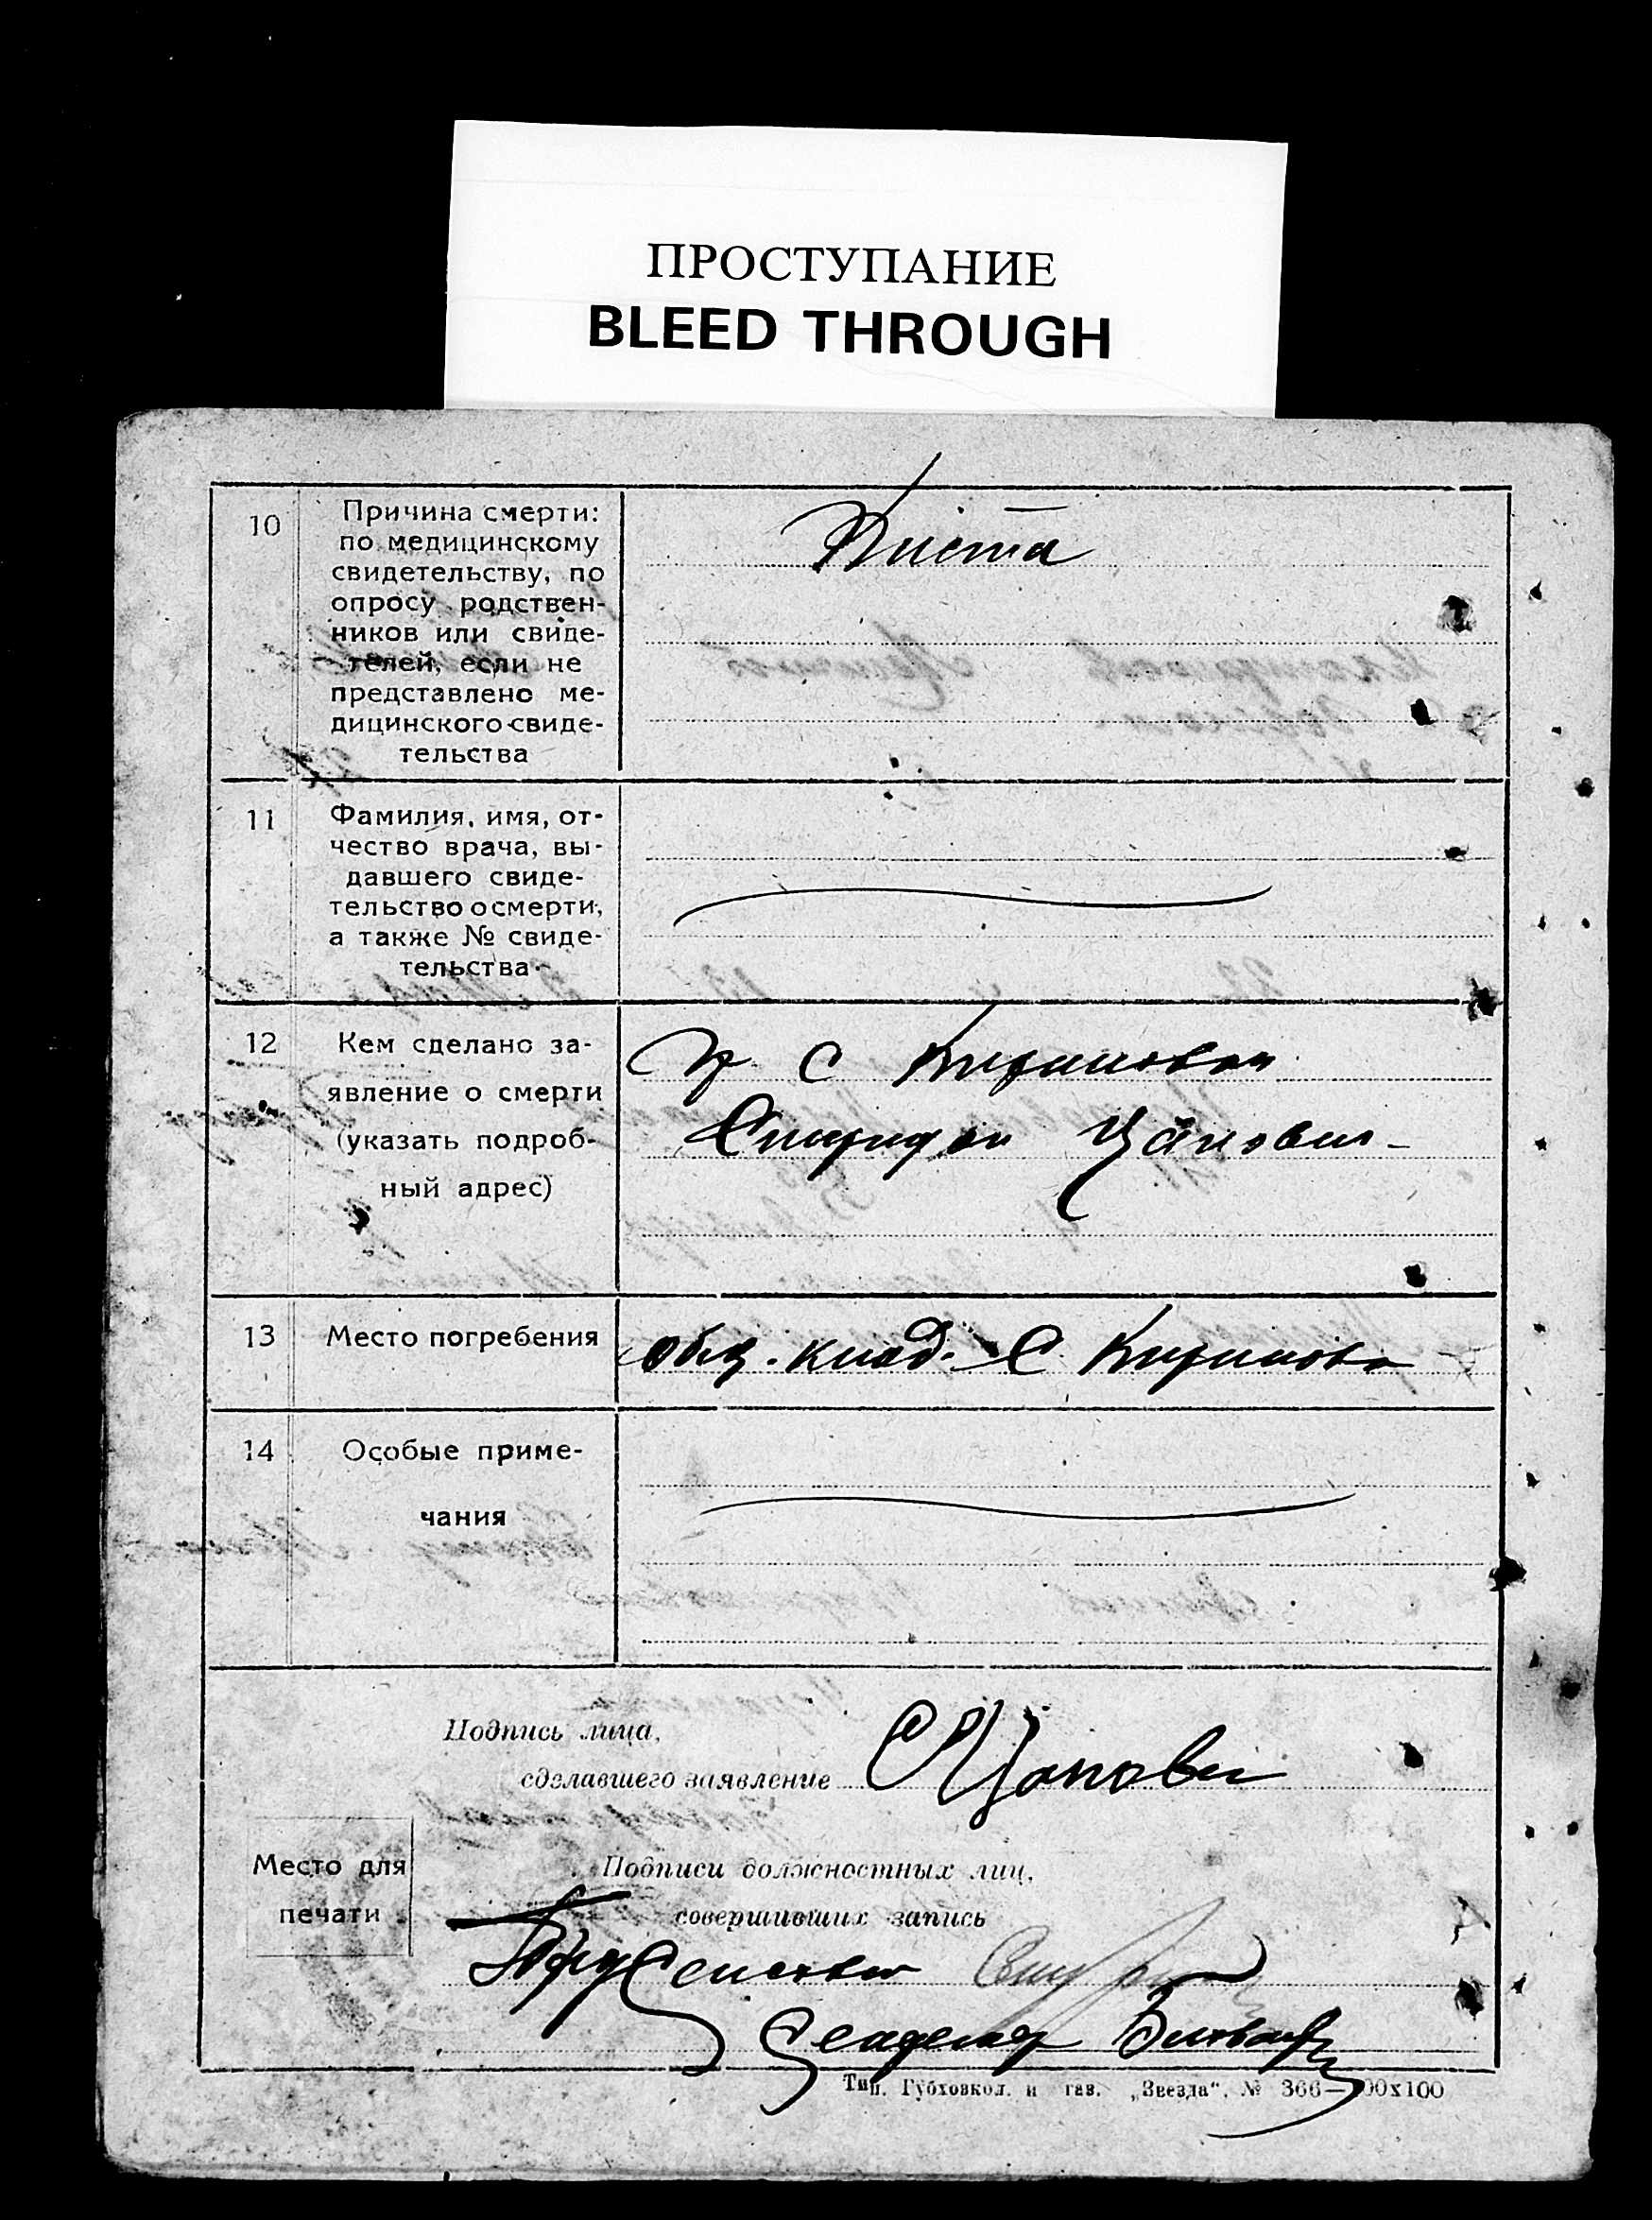 ПРОСТУПАНИЕ
BLEED THROUGH
10
Причина смерти:
по медицинскому
свидетельству, по
опросу родствен-
ников или свиде-
телей, если не
представлено ме-
дицинского свиде-
тельства
Киста
11
Фамилия, имя, от-
чество врача, вы-
давшего свиде-
тельство о смерти,
а также № свиде-
тельства
12
Кем сделано за-
явление о смерти
(указать подроб-
ный адрес)
гр С
Спиридон
13
Место погребения
общ. клад. С
14
Особые приме-
чания
Подпись лица,
сделавшего заявление
Место для
печати
Подписи должностных лиц,
совершивших запись
Секретар
Тип. Губховкол. и газ. „Звезда“, № 366—